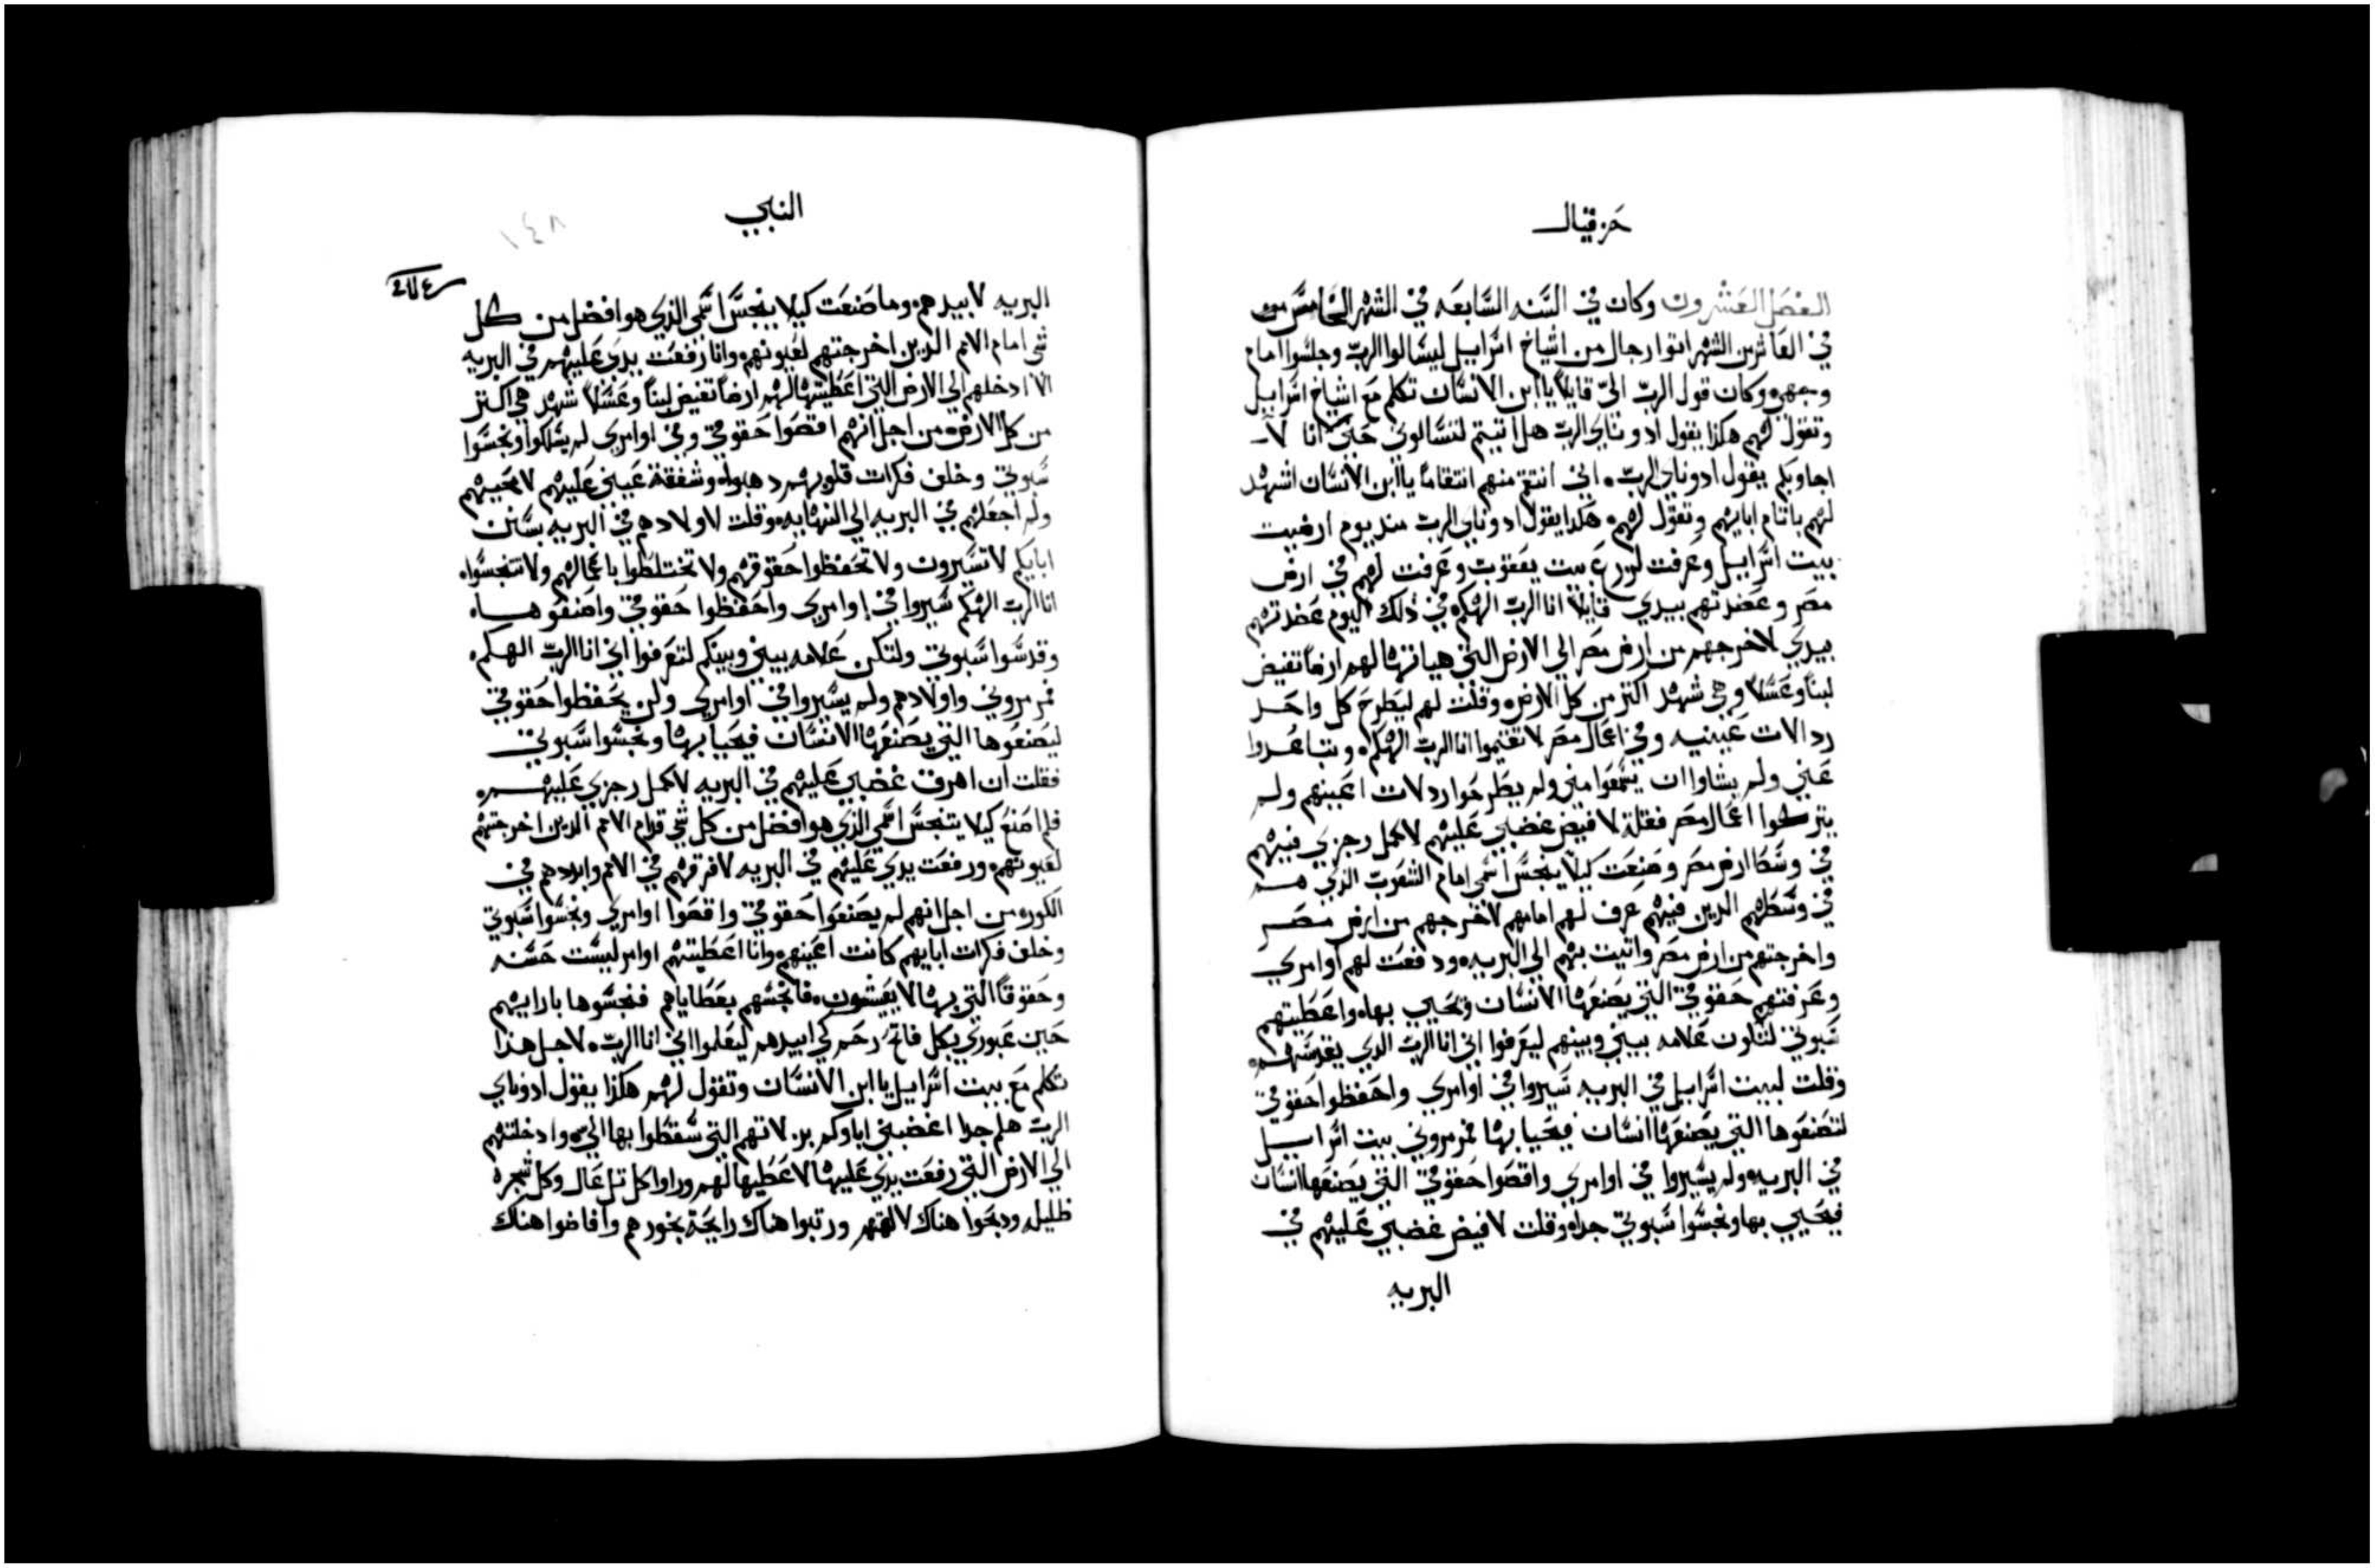 حزقيال
الفصل العشرون وكان في السنه السابعه في الشهر الخامس من
في العاشر من الشهر اتوا رجال من اشياخ اسراييل ليسالوا الرب وجلسوا امام
وجهي وكان قول الرب اليّ قايلاً يا ابن الانسان تكلم مع اشياخ اسراييل
وتقول لهم هكذا يقول ادوناي الرب هل اتيتم لتسالوني حيّ انا لا
اجاوبكم يقول ادوناي الرب. اني انتقم منهم انتقاماً يا ابن الانسان اشهد
لهم باثام ابايهم وتقول لهم. هكذا يقول ادوناي الرب منذ يوم ارضيت
بيت اسراييل وعرفت لزرع بيت يعقوب وعرفت لهم في ارض
مصر وعضدتهم بيدي قايلاً انا الرب الهكم في ذلك اليوم عضدتهم
بيدي لاخرجهم من ارض مصر الي الارض التي هياتها لهم ارضاً تفيض
لبناً وعسلاً وهي شهد اكثر من كل الارض. وقلت لهم ليطرح كل واحد
ردالات عينيه وفي اعمال مصر لا تتنجسوا انا الرب الهكم. وتباعدوا
عني ولم يشاوا ان يسمعوا مني ولم يطرحوا ردلات اعينهم ولم
يتركوا اعمال مصر فقلت لافيض غضبي عليهم لاكمل رجزي فيهم
في وسط ارض مصر وصنعت كيلا ينجس اسمي امام الشعوب الذي هم
في وسطهم الدين فيهم عرف لهم امامهم لاخرجهم من ارض مصر
واخرجتهم من ارض مصر واتيت بهم الي البريه. ودفعت لهم اوامري
وعرفتهم حقوقي التي يصنعها الانسان ويحيي بها. واعطيتهم
سبوتي لتكون علامه بيني وبينهم ليعرفوا اني انا الرب الدي يقدسهم.
وقلت لبيت اسراييل في البريه سيروا في اوامري واحفظوا حقوقي
لتصنعوها التي يصنعها انسان فيحيا بها ثمرمروني بيت اسراييل
في البريه. ولم يسيروا في اوامري واقصوا حقوقي التي يصنعها انسان
فيحيي بها ونجسوا سبوتي جداً. وقلت لافيض غضبي عليهم في
البريه
النبي
١٤٨
البريه لابيدهم. وما صنعت كيلا ينجس اسمي الذي هو افضل من كل
شي امام الامم الدين اخرجتهم لعيونهم. وانا رفعت يدي عليهم في البريه
الا ادخلهم الي الارض التي اعطيتها لهم ارضاً تفيض لبناً وعسلاً شهد هي اكثر
من كل الارض. من اجل انهم اقصوا حقوقي وفي اوامري لم يسلكوا ونجسوا
سبوتي وخلف فكرات قلوبهم دهبوا. وشفقة عيني عليهم لا تحييهم
ولم اجعلهم في البريه الي النهايه. وقلت لاولادهم في البريه بسنن
ابايكم لا تسيرون ولا تحفظوا حقوقهم ولا تختلطوا باعمالهم ولا تتنجسوا.
انا الرب الهكم سيروا في اوامري واحفظوا حقوقي واصنعوها.
وقدسوا سبوتي ولتكن علامه بيني وبينكم لتعرفوا اني انا الرب الهكم.
ثمرمروني واولادهم ولم يسيروا في اوامري ولن يحفظوا حقوقي
ليصنعوها التي يصنعها الانسان فيحيا بها ونجسوا سبوتي
فقلت ان اهرق غضبي عليهم في البريه لاكمل رجزي عليهم.
فلم اصنع كيلا يتنجس اسمي الذي هو افضل من كل شي قدام الامم الدين اخرجتهم
لعيونهم. ورفعت يدي عليهم في البريه لافرقهم في الامم وابددهم في
الكوره. من اجل انهم لم يصنعوا حقوقي واقصوا اوامري ونجسوا سبوتي
وخلف فكرات ابايهم كانت اعينهم. وانا اعطيتهم اوامر ليست حسنه
وحقوقاً التي بها لا يعيشون. فانجسهم بعطاياهم فنجسوها بارايهم
حين عبوري بكل فاتح رحم كي ابيدهم ليعلموا اني انا الرب. لاجل هذا
تكلم مع بيت اسراييل يا ابن الانسان وتقول لهم هكذا يقول ادوناي
الرب هلم جدا اغضبني اباوكم بزلاتهم التي سقطوا بها اليّ. وادخلتهم
الي الارض التي رفعت يدي عليها لاعطيها لهم وراوا كل تل عال وكل شجره
ظليله ودبحوا هناك لالهتهم ورتبوا هناك رايحة بخورهم وافاضوا هناك